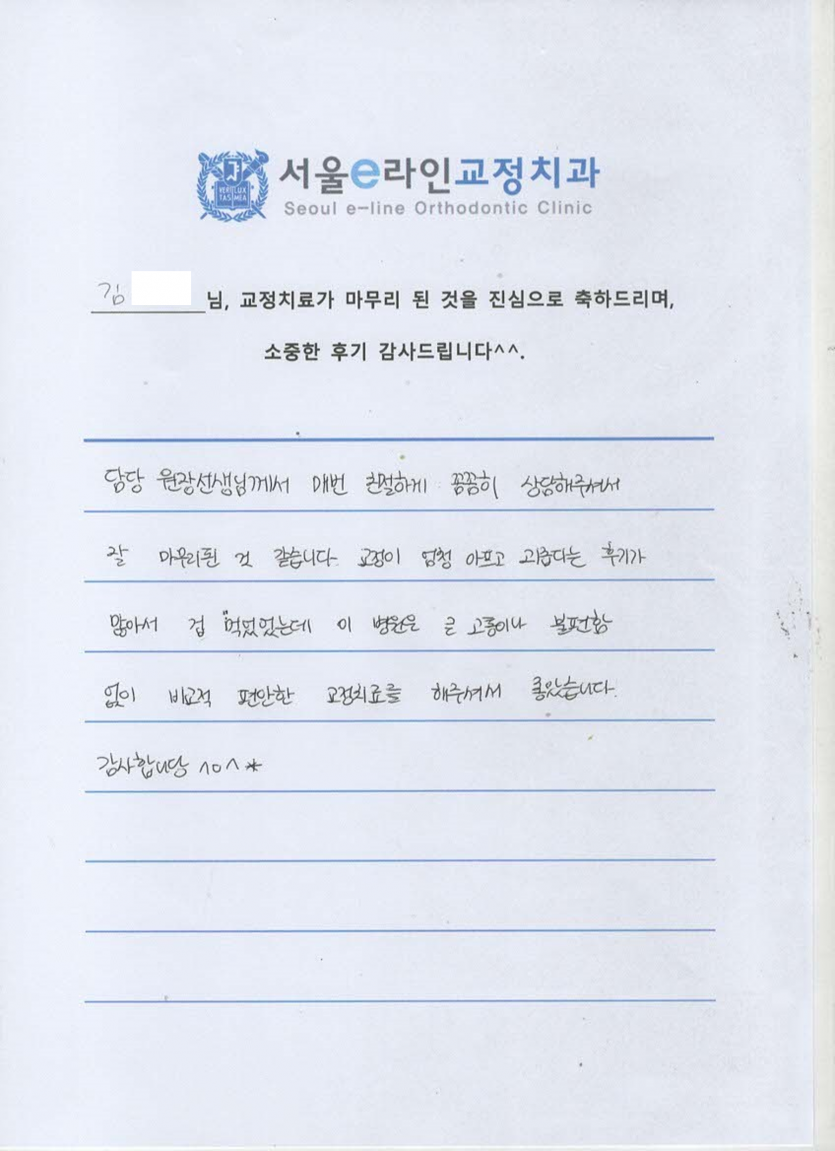 서울e라인교정치과
Seoul e-line Orthodontic Clinic
김 님, 교정치료가 마무리 된 것을 진심으로 축하드리며,
소중한 후기 감사드립니다^^.
담당 원장선생님께서 매번 친절하게 꼼꼼히 상담해주셔서
잘 마무리된 것 같습니다. 교정이 엄청 아프고 괴롭다는 후기가
많아서 겁 먹었었는데 이 병원은 큰 고통이나 불편함
없이 비교적 편안한 교정치료를 해주셔서 좋았습니다.
감사합니당 ^o^*